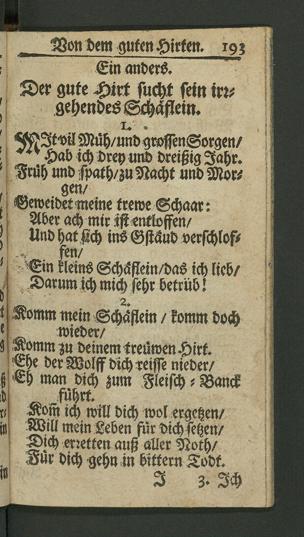 Von dem guten Hirten. 193
Ein anders.
Der gute Hirt sucht sein irr⸗
gehendes Schäflein.
1.
MIt vil Müh/ und grossen Sorgen/
Hab ich drey und dreißig Jahr.
Früh und spath/ zu Nacht und Mor⸗
gen/
Geweidet meine trewe Schaar:
Aber ach mir ist entloffen/
Und hat sich ins Gstäud verschlof⸗
fen/
Ein kleins Schäflein/ das ich lieb/
Darum ich mich sehr betrüb!
2.
Komm mein Schäflein / komm doch
wieder/
Komm zu deinem treüwen Hirt.
Ehe der Wolff dich reisse nieder/
Eh man dich zum Fleisch⸗Banck
führt.
Kom̃ ich will dich wol ergetzen/
Will mein Leben für dich setzen/
Dich erretten auß aller Noth/
Für dich gehn in bittern Todt.
J 3. Ich